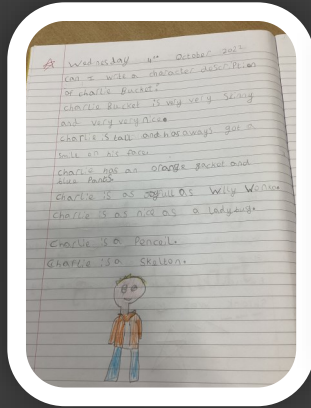 A Wednesday 4th October 2022
Can I write a character description
of charlie Bucket?
Charlie Bucket is very very
and very very nice.
Charlie is tall and has always got a
smile on his face.
Charlie has an orange jacket and
blue
Charlie is as as Willy Wonka.
Charlie is as nice as a ladybug.
Charlie is a Pencel.
Charlie is a Skelton.